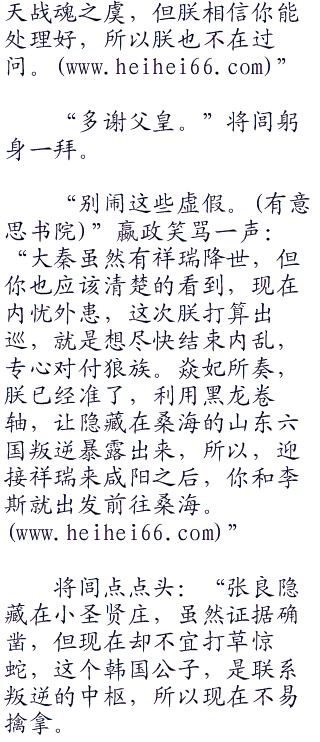 天战魂之虞，但朕相信你能
处理好，所以朕也不在过
问。(www.heihei66.com)”
“多谢父皇。”将闾躬
身一拜。
“别闹这些虚假。(有意
思书院)”嬴政笑骂一声：
“大秦虽然有祥瑞降世，但
你也应该清楚的看到，现在
内忧外患，这次朕打算出
巡，就是想尽快结束内乱，
专心对付狼族。焱妃所奏，
朕已经准了，利用黑龙卷
轴，让隐藏在桑海的山东六
国叛逆暴露出来，所以，迎
接祥瑞来咸阳之后，你和李
斯就出发前往桑海。
(www.heihei66.com)”
将闾点点头：“张良隐
藏在小圣贤庄，虽然证据确
凿，但现在却不宜打草惊
蛇，这个韩国公子，是联系
叛逆的中枢，所以现在不易
擒拿。